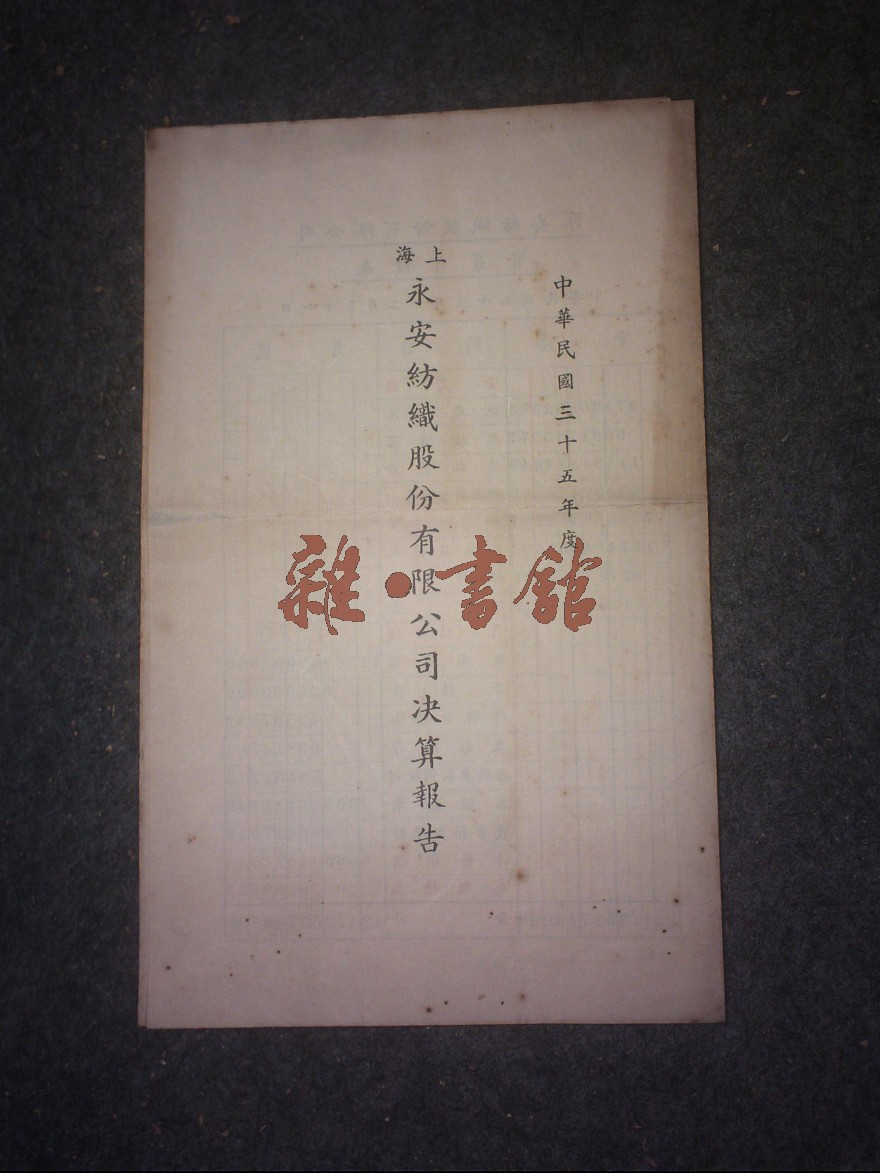 中華民國三十五年度
上海
永安紡織股份有限公司決算報告
雜·書館